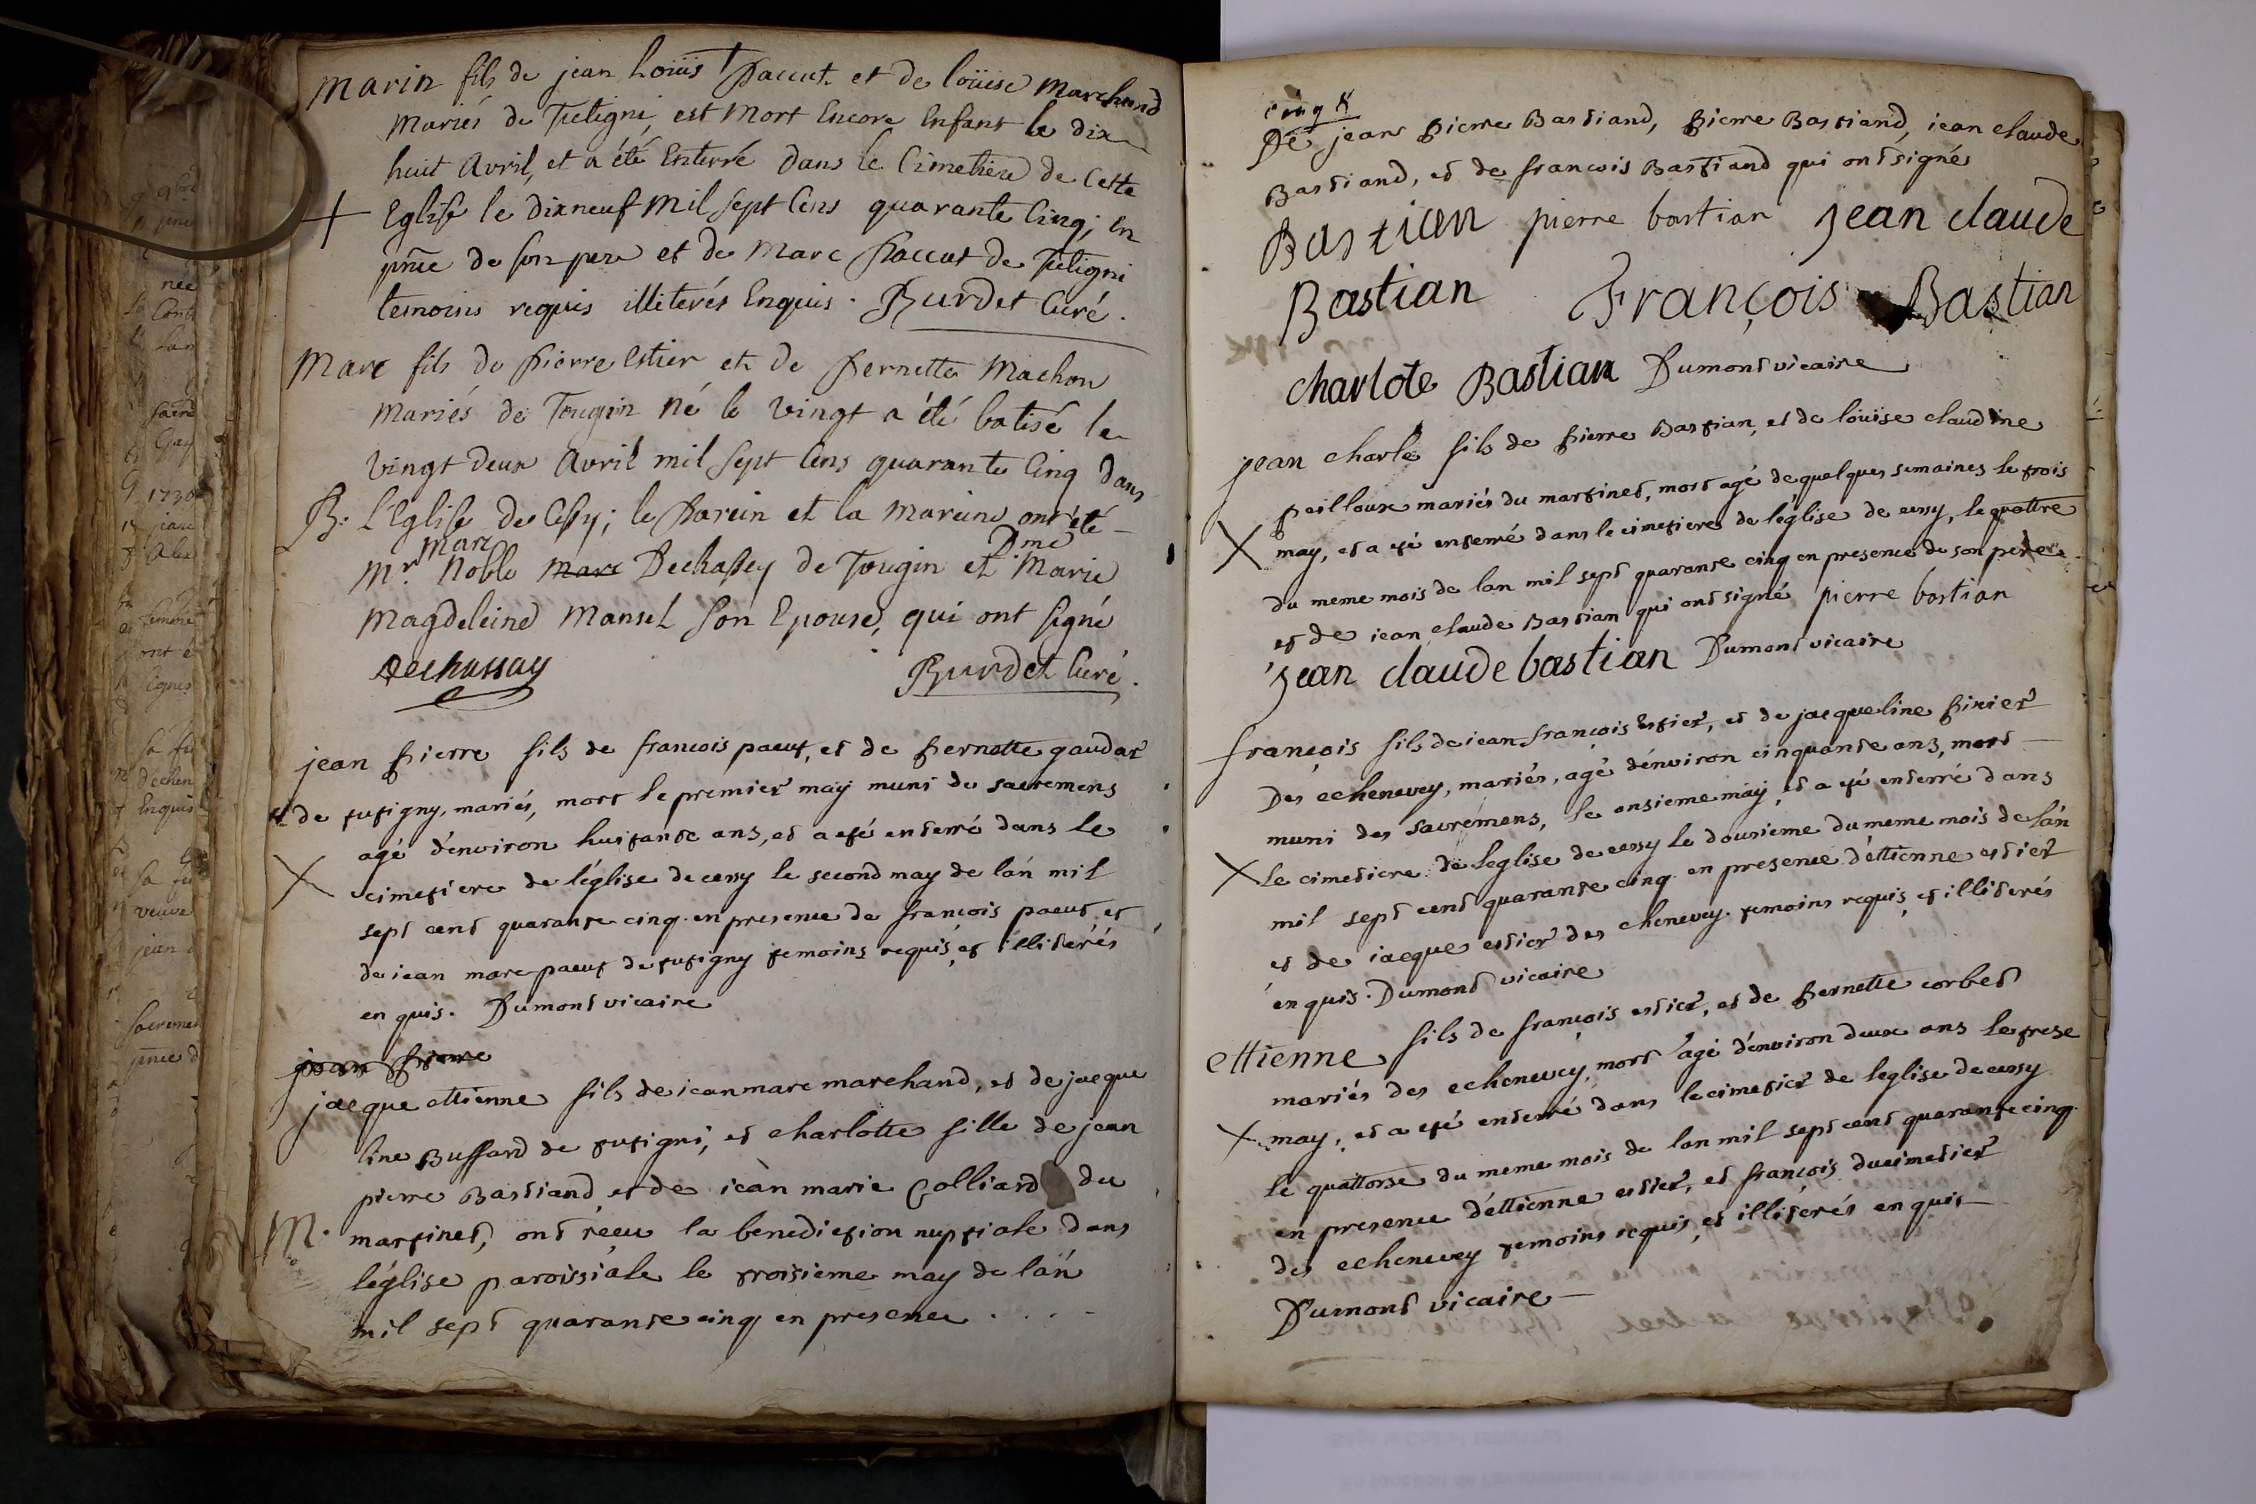 Marin fils de jean Loüis Paccut et de loüise Marchand
Mariés de Tutigni, est Mort Encore Enfant le dix
huit Avril, et a été Enterré dans le Cimetiere de Cette
+ Eglise le dixneuf Mil sept Cens quarante Cinq; En
pnce de son pere et de Marc Paccut de Tutigni
temoins requis illiterés Enquis. Burdet Curé.
Marc fils de Pierre Estier et de Pernette Machon
Mariés de Tougin né le vingt a été batisé le
vingt deux Avril mil sept Cens quarante Cinq dans
B. l'Eglise de Cessy; le Parein et la Mareine ont été
Marc Dme
Mr. Noble Marc Dechassey de Tougin et Marie
Magdeleine Mansel son Epouse, qui ont signé
Dechassay Burdet Curé.
jean pierre fils de francois pacut, et de pernette gaudar
de tutigny, mariés, mort le premier may muni de sacremens
agé d'environ huitante ans, et a eté enterré dans le
X cimetiere de l'église de cessy le second may de lán mil
sept cent quarante cinq. en presence de francois pacut et
de iean marc pacut de tutigny temoins requis, et illiterés
en quis. Dumont vicaire
jean pierre
jacque ettienne fils de iean marc marchand, et de jacque
line Buffard de tutigni, et charlotte fille de jean
pierre Bastiand, et de iean marie Colliard du
M. martinet, ont réeu la benediction nuptiale dans
léglise paroissiale le troisieme may de lán
mil sept quarante cinq en presence . . . .
cinq
De jean pierre Bastiand, pierre Bastiand, iean claude
Bastiand, et de francois Bastiand qui ont signés
Bastian pierre bastian jean claude
Bastian François Bastian
charlote Bastian Dumont vicaire
jean charle fils de pierre Bastian, et de loüise claudine
pailloux mariés du martinet, mort agé de quelques semaines le trois
X may, et a eté enterré dans le cimetiere de léglise de cessy, le quattre
du meme mois de lan mil sept quarante cinq en presence de son pere
et de iean claude Bastian qui ont signé pierre bastian
jean claude bastian Dumont vicaire
françois fils de iean françois estier, et de jacqueline pivier
Des echenevey, mariés, agé dénviron cinquante ans, mort
muni des sacrémens, le onsieme máy, et a eté enterré dans
X le cimetiere de léglise de cessy le dousieme du meme mois de lán
mil sept cent quarante cinq en presence déttienne estier
et de iacque estier des chenevey. temoins requis, et illiterés
en quis. Dumont vicaire
ettienne fils de françois estier, et de pernette corbet
mariés des echenevey, mort agé dénviron deux ans le trese
X may, et a eté enterré dans le cimetier de leglise de cessy
le quattorse du meme mois de lan mil sept cent quarante cinq.
en presence déttienne estier, et françois ducimetier
des echenevey temoins requis, et illiterés en quis
Dumont vicaire